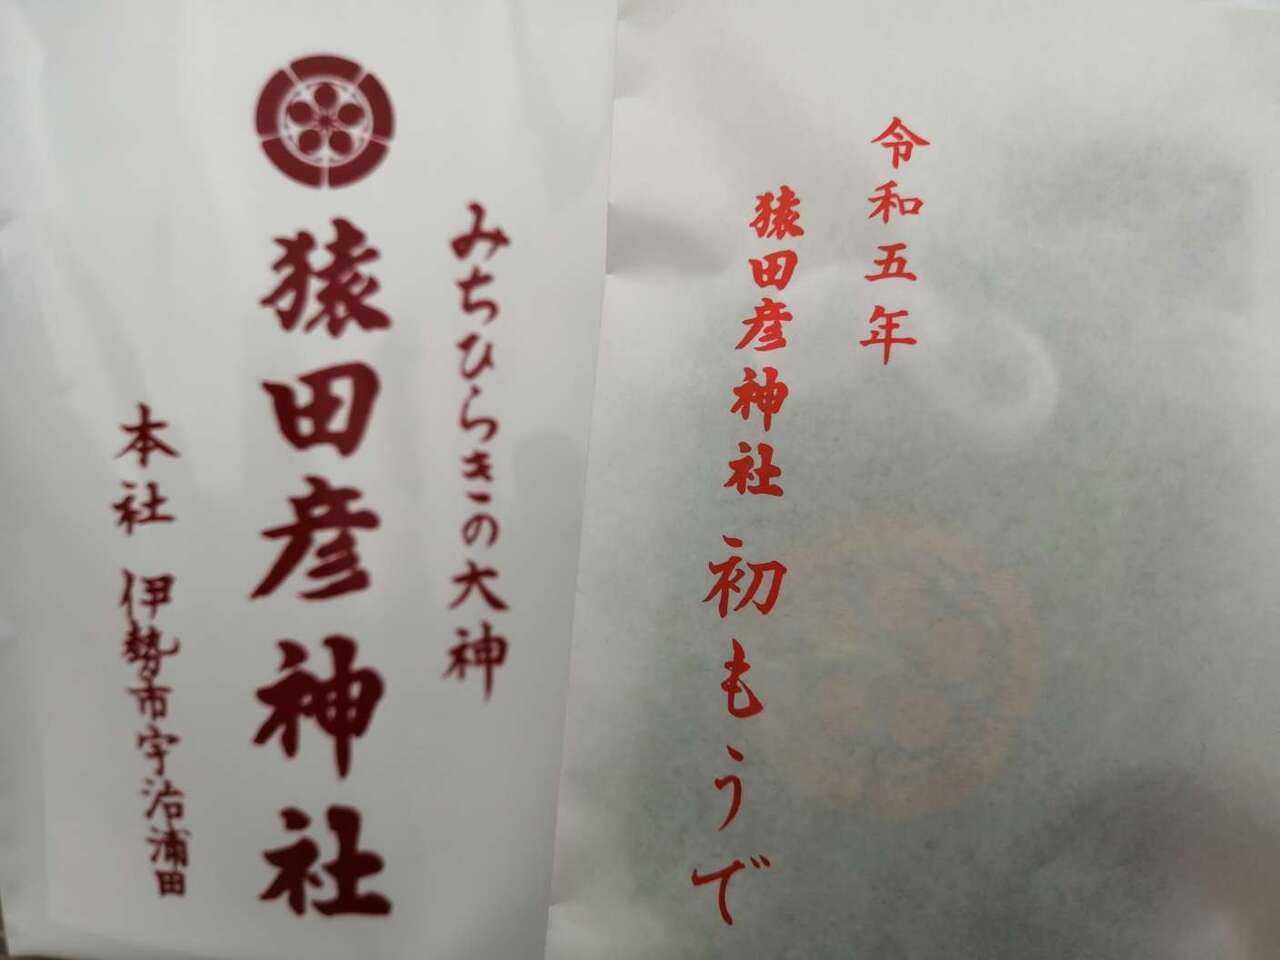 みちひらきの大神
猿田彦神社
本社 伊勢市宇治浦田
令和五年
猿田彦神社 初もうで